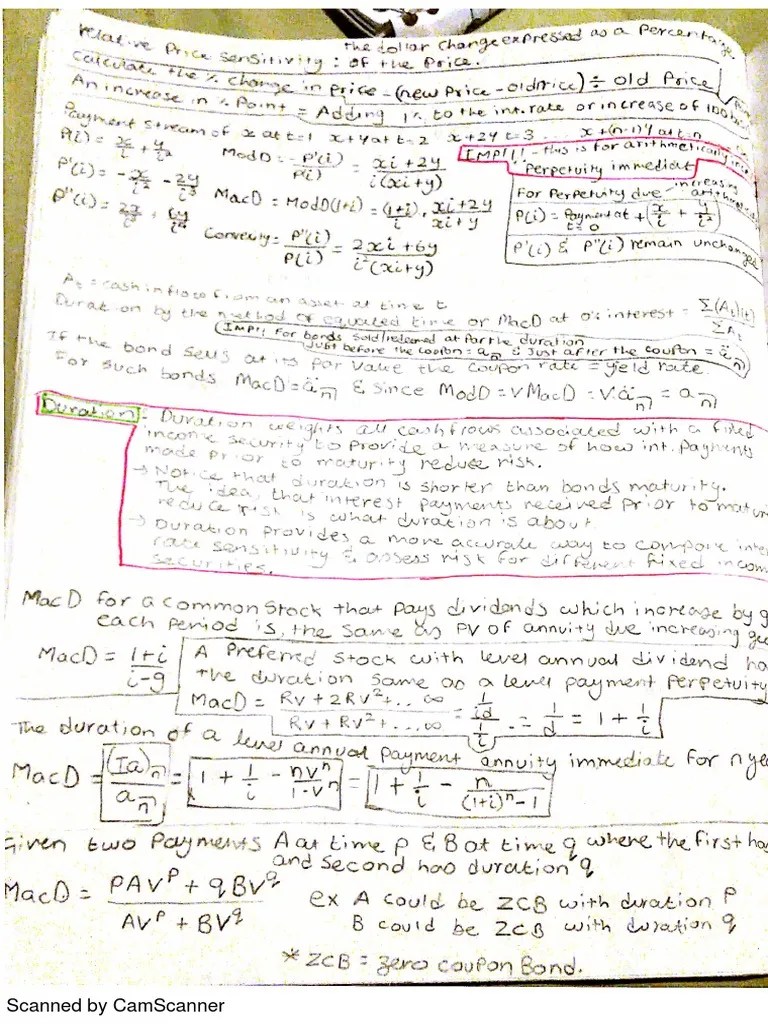 the dollar change expressed as a percentage
Relative Price Sensitivity : of the Price.
Calculate the % change in price - (new Price - old Price) ÷ old Price
An increase in % Point = Adding 1% to the int. rate or increase of 100
Payment stream of x at t=1 x+y at t=2 x+2y t=3 ... x+(n-1)y at t=n
P(i) = x/i + y/i² ModD = -P'(i)/P(i) = xi+2y / i(xi+y)
IMP!!! - this is for arithmetically
Perpetuity immediat
P'(i) = -x/i² - 2y/i³ MacD = ModD(1+i) = (1+i)/i · xi+2y / xi+y
For Perpetuity due - increasing
P(i) = Payment at t=0 + (x/i + y/i²)
P''(i) = 2x/i³ + 6y/i⁴
Convexity = P''(i)/P(i) = 2xi+6y / i²(xi+y)
P'(i) & P''(i) remain unchanged
At = cash inflow from an asset at time t
Duration by the method of equated time or MacD at 0% interest = Σ(At)(t) / ΣAt
(IMP!! For bonds sold/redeemed at par the duration
just before the coupon = a n̅| & just after the coupon = ä n̅|)
If the bond sells at its par value the coupon rate = yield rate.
For such bonds MacD = ä n̅| & since ModD = vMacD = v.ä n̅| = a n̅|
Duration - Duration weights all cashflows associated with a fixed
income security to provide a measure of how int. payments
made prior to maturity reduce risk.
→ Notice that duration is shorter than bonds maturity.
The idea, that interest payments received prior to matur
reduce risk is what duration is about.
→ Duration provides a more accurate way to compare inte
rate sensitivity & assess risk for different fixed incom
securities.
MacD for a common stock that pays dividends which increase by g
each period is, the same as PV of annuity due increasing geo
MacD = 1+i / i-g
A Preferred stock with level annual dividend ha
the duration same as a level payment perpetuity
MacD = Rv + 2Rv² + ... ∞ / Rv + Rv² + ... ∞ = 1/id / 1/i = 1/d = 1 + 1/i
The duration of a level annual payment annuity immediate for n yea
MacD = (Ia) n̅| / a n̅| = 1 + 1/i - nvⁿ/1-vⁿ = 1 + 1/i - n/(1+i)ⁿ-1
Given two payments A at time p & B at time q where the first ha
and second has duration q
MacD = pAvᵖ + qBv^q / Avᵖ + Bv^q
ex A could be ZCB with duration p
B could be ZCB with duration q
* ZCB = zero coupon Bond.
Scanned by CamScanner